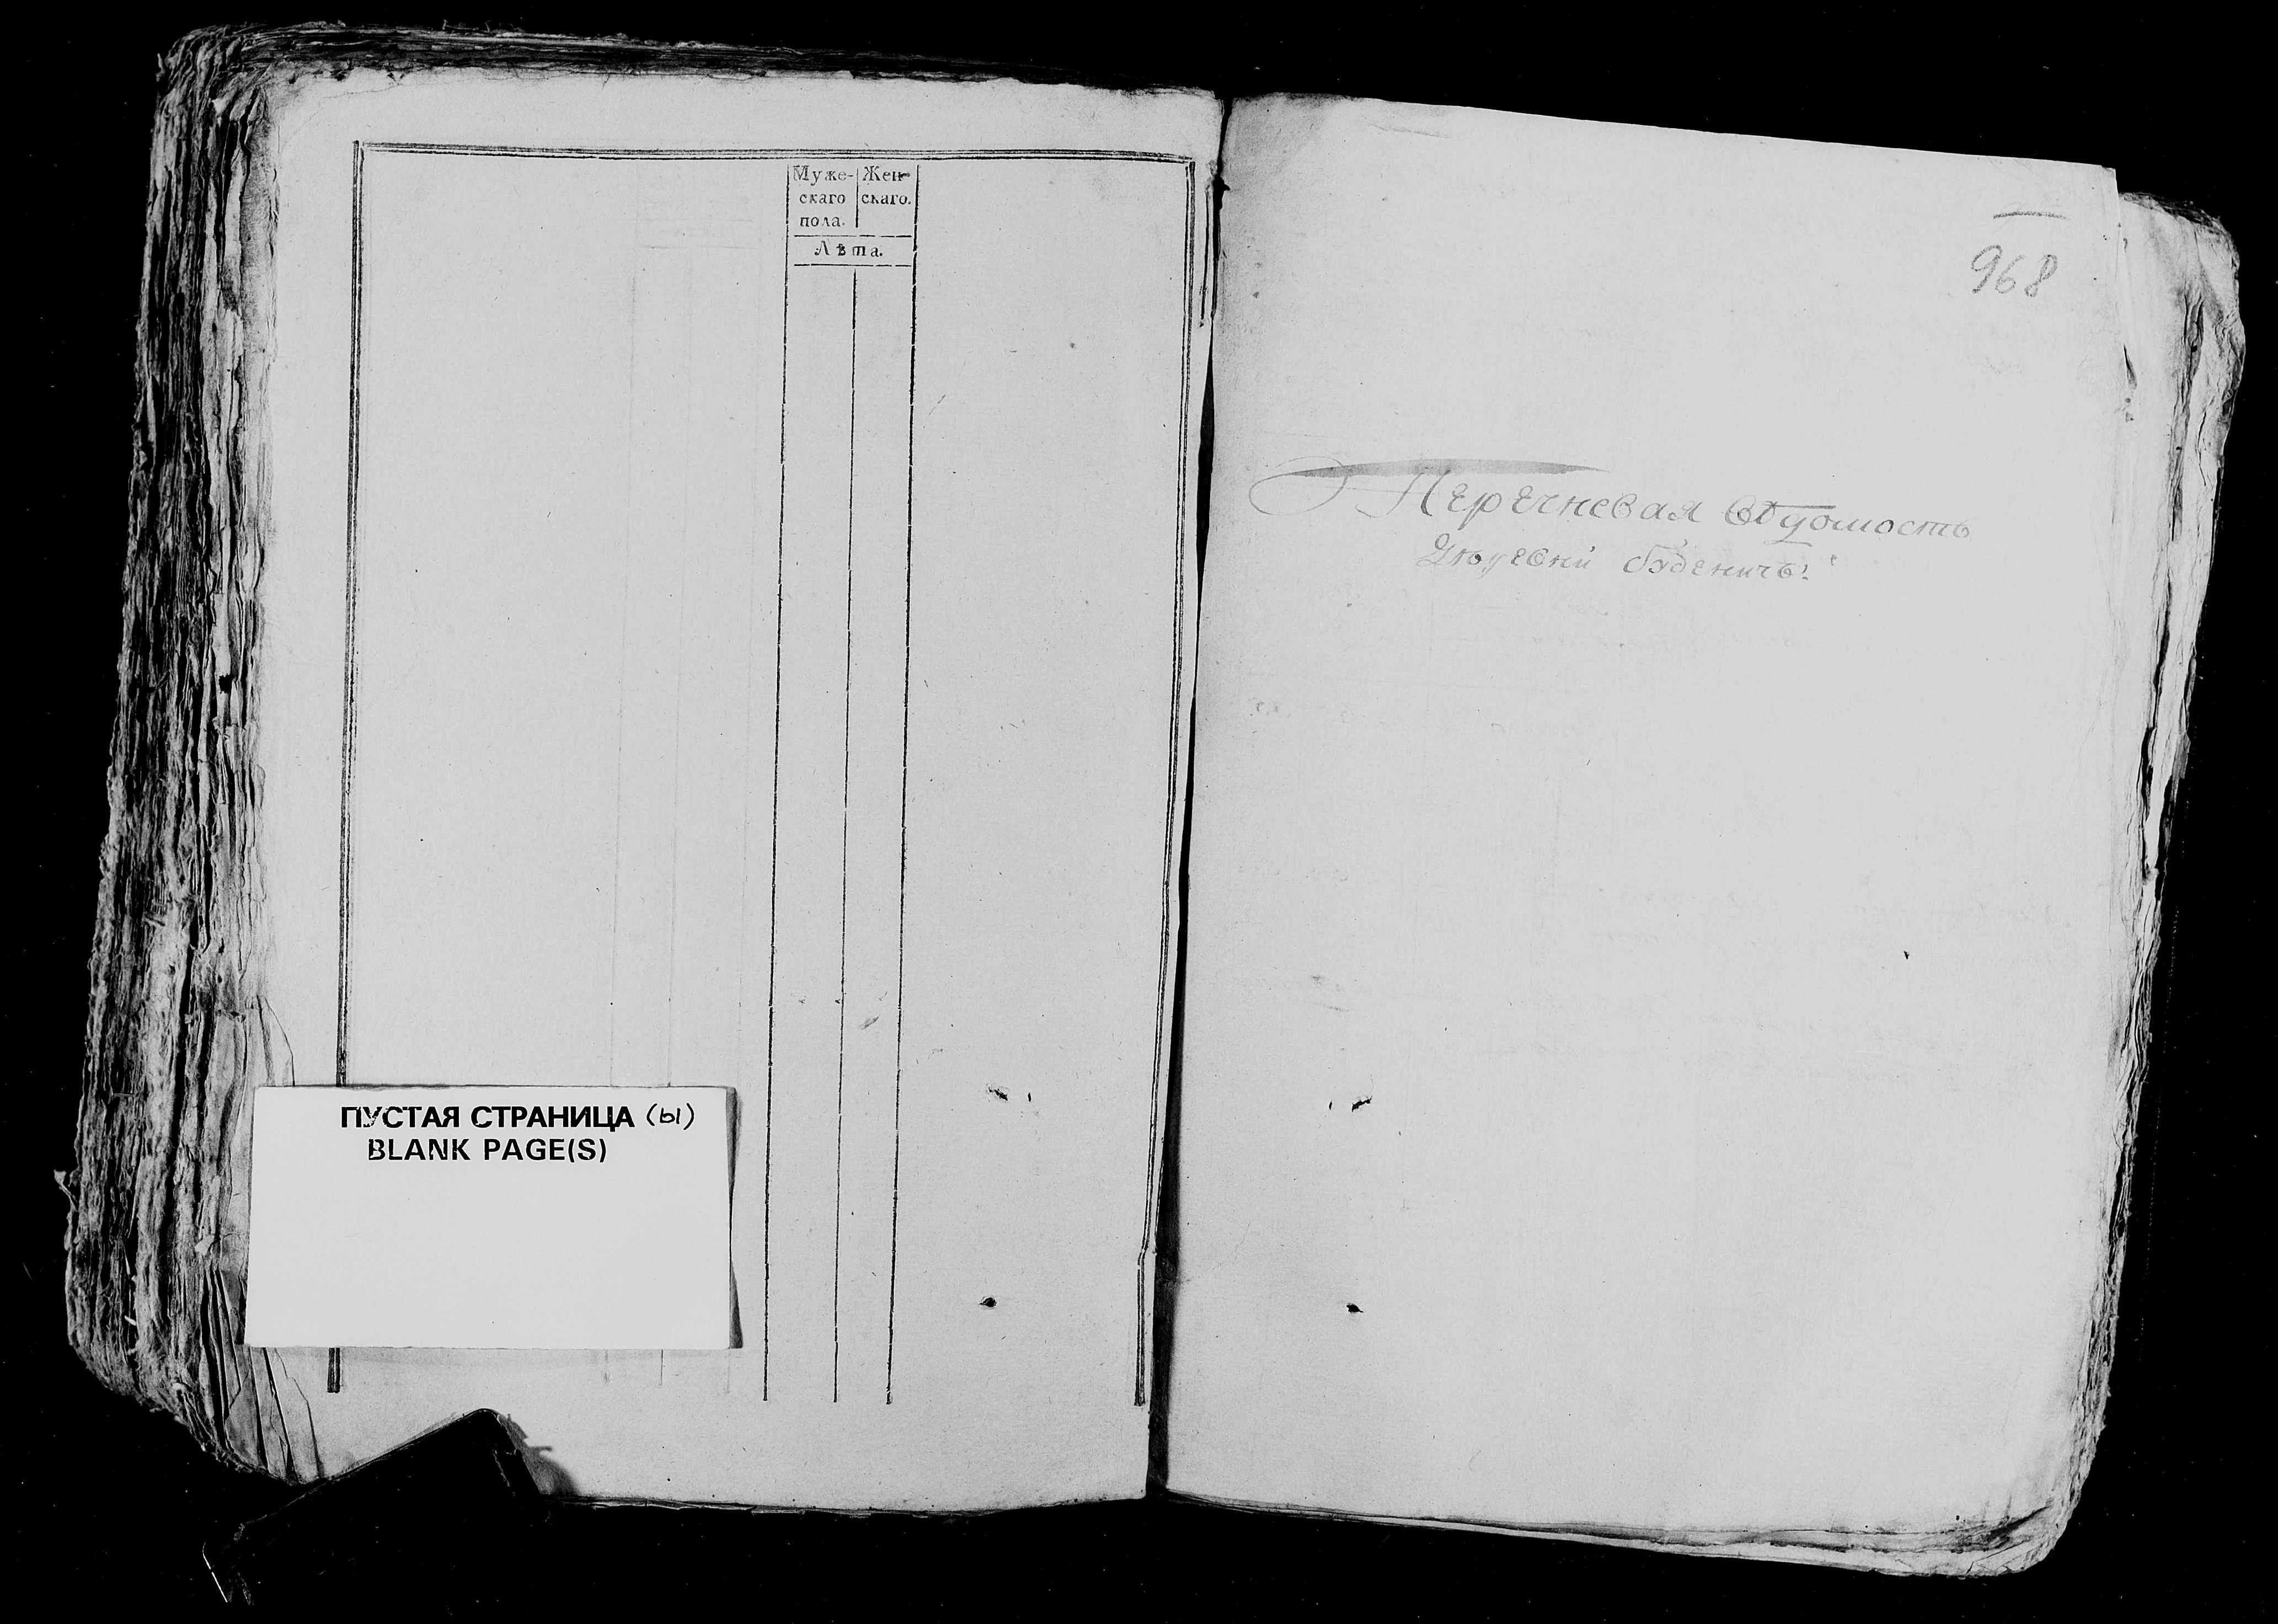 Муже- Жен-
скаго скаго.
пола.
Лѣта.
ПУСТАЯ СТРАНИЦА (ы)
BLANK PAGE(S)
968
Перечневая вѣдомость